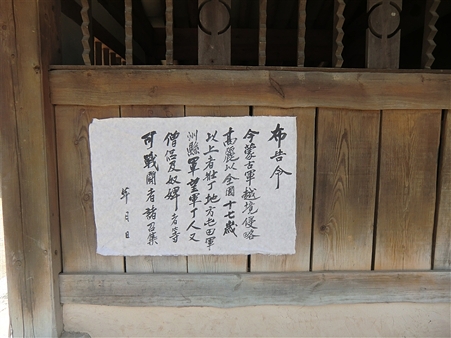 布告令
今蒙古軍越境侵略
高麗以全國十七歲
以上者壯丁地方屯田軍
州縣軍望軍丁人又
僧侶及奴婢者等
可戰鬪者諸召集
年 月 日